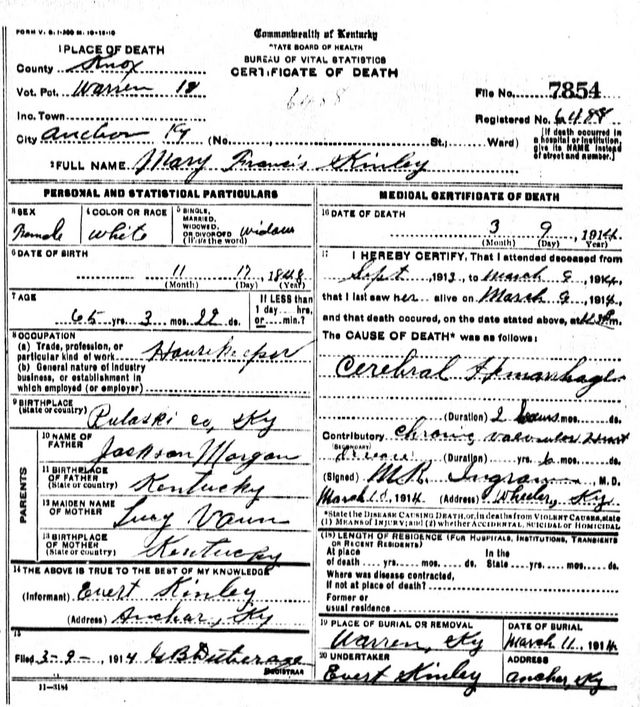 FORM V. S. 1-300 M. 10-13-10
Commonwealth of Kentucky
STATE BOARD OF HEALTH
BUREAU OF VITAL STATISTICS
CERTIFICATE OF DEATH
1 PLACE OF DEATH
County Knox
Vot. Pct. Warren 18
Inc. Town
City anchor Ky (No. St.; Ward)
6488
File No. 7854
Registered No. 6488
[If death occurred in a hospital or institution, give its NAME instead of street and number.]
2 FULL NAME Mary Francis Kinley
PERSONAL AND STATISTICAL PARTICULARS
3 SEX
Female
4 COLOR OR RACE
White
5 SINGLE, MARRIED, WIDOWED, OR DIVORCED (Write the word) widow
6 DATE OF BIRTH
11 17, 1848
(Month) (Day) (Year)
7 AGE
65 yrs. 3 mos. 22 ds.
If LESS than 1 day hrs. or min.?
8 OCCUPATION
(a) Trade, profession, or particular kind of work Housekeeper
(b) General nature of industry business, or establishment in which employed (or employer)
9 BIRTHPLACE
(State or country) Pulaski co, Ky
PARENTS
10 NAME OF FATHER Jackson Morgan
11 BIRTHPLACE OF FATHER (State or country) Kentucky
12 MAIDEN NAME OF MOTHER Lucy Vaun
13 BIRTHPLACE OF MOTHER (State or country) Kentucky
14 THE ABOVE IS TRUE TO THE BEST OF MY KNOWLEDGE
(Informant) Evert Kinley
(Address) Anchor, Ky
15
Filed 3-9-, 1914
REGISTRAR
11-3184
MEDICAL CERTIFICATE OF DEATH
16 DATE OF DEATH
3 9, 1914
(Month) (Day) (Year)
17 I HEREBY CERTIFY, That I attended deceased from
Sept, 1913, to March 9, 1914,
that I last saw her alive on March 9, 1914,
and that death occured, on the date stated above, at m.
The CAUSE OF DEATH* was as follows:
Cerebral Hemorrhage
(Duration) 2 hours mos. ds.
Contributory Chronic valvular Heart
(SECONDARY) disease (Duration) yrs. 6 mos. ds.
(Signed) M.R. Ingram M. D.
March 10, 1914 (Address) Wheeler, Ky.
*State the DISEASE CAUSING DEATH, or, in deaths from VIOLENT CAUSES, state
(1) MEANS OF INJURY; and (2) whether ACCIDENTAL, SUICIDAL or HOMICIDAL
(18) LENGTH OF RESIDENCE (FOR HOSPITALS, INSTITUTIONS, TRANSIENTS OR RECENT RESIDENTS)
At place of death yrs. mos. ds. In the State yrs. mos. ds.
Where was disease contracted, If not at place of death?
Former or usual residence
19 PLACE OF BURIAL OR REMOVAL
Warren, Ky
DATE OF BURIAL
March 11, 1914
20 UNDERTAKER
Evert Kinley
ADDRESS
anchor, Ky